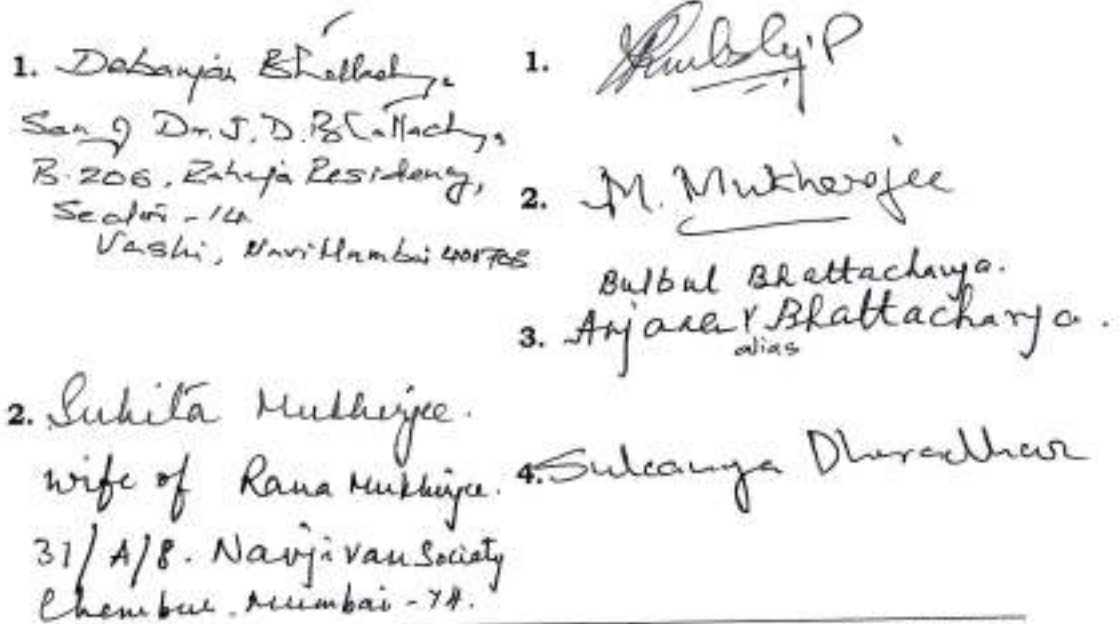 1. Debanjan Bhattacharya
Son of Dr. J. D. Bhattacharya
B-206, Raheja Residency,
Sector - 14
Vashi, Navi Mumbai 400705
2. Suhita Mukherjee.
wife of Rana Mukherjee.
37/A/8. Navjivan Society
Chembur. Mumbai - 74.
1.
2. M. Mukherjee
Bulbul Bhattacharya.
3. Anjana Bhattacharya.
alias
4. Sukanya Dhuradhar